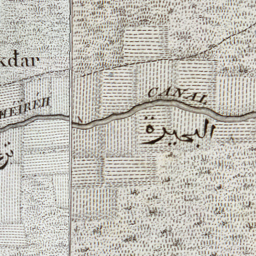 kdar
HEIRÉH CANAL
البحيرة